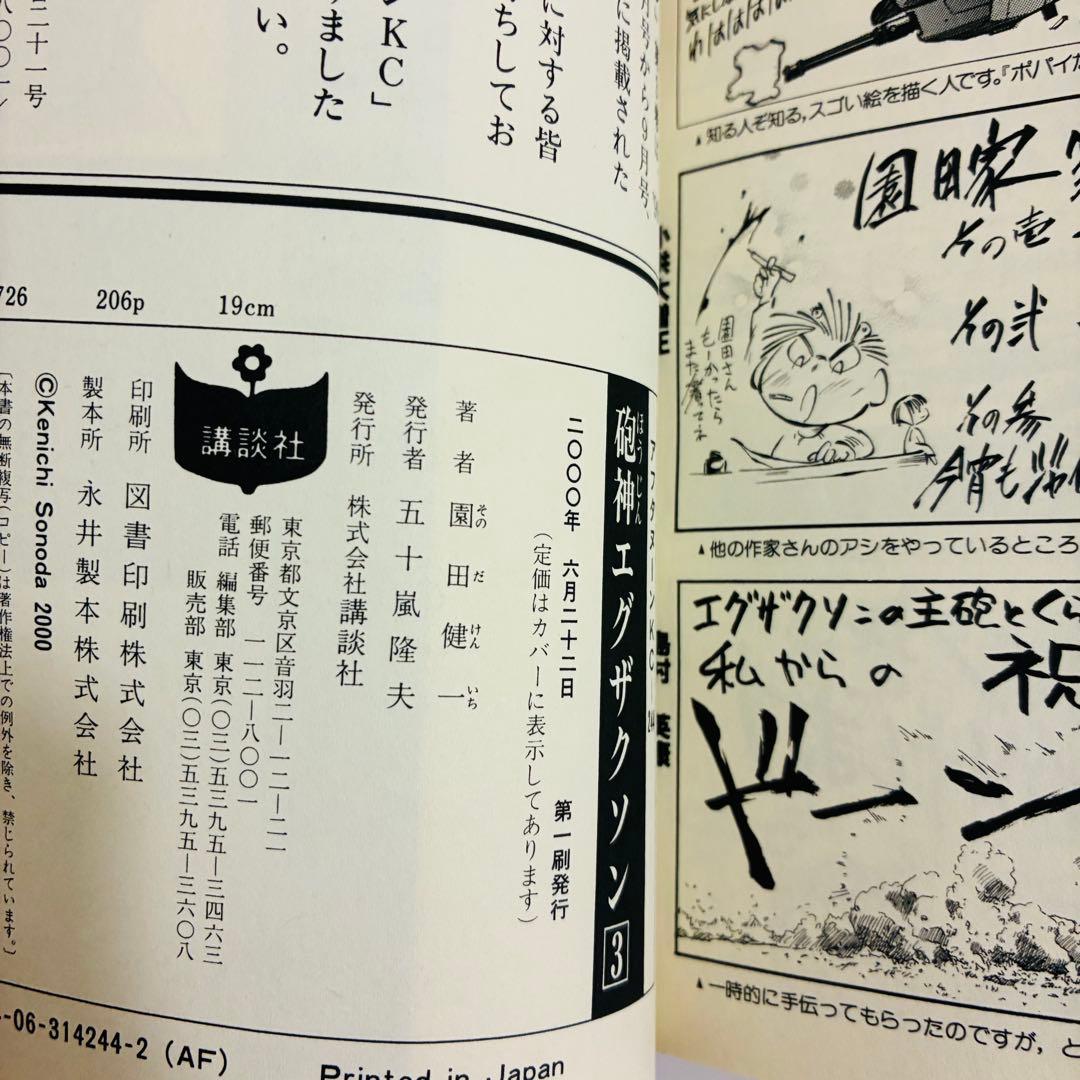 号から9月号、
に掲載された
に対する皆
ちしてお
KC」
りました
い。
二十一号
八〇〇一
726 206p 19cm
アフタヌーンKC
244
ほうじん
砲神エグザクソン 3
二〇〇〇年 六月二十二日 第一刷発行
(定価はカバーに表示してあります)
著者 園田健一
その だ けん いち
発行者 五十嵐隆夫
発行所 株式会社講談社
東京都文京区音羽二―一二―二一
郵便番号 一一二―八〇〇一
電話 編集部 東京(〇三)五三九五―三四六三
販売部 東京(〇三)五三九五―三六〇八
講談社
印刷所 図書印刷株式会社
製本所 永井製本株式会社
©Kenichi Sonoda 2000
〔本書の無断複写(コピー)は著作権法上での例外を除き、禁じられています。〕
-06-314244-2 (AF)
Printed in Japan
わははは
▲知る人ぞ知る,スゴい絵を描く人です。『ポパイ
園田家
その壱
その弐
その参
今宵も
園田さん
もーかったら
また奢てネ
▲他の作家さんのアシをやっているところ
島村 英康
エグザクソンの主砲とくら
私からの 祝
ドーン
▲一時的に手伝ってもらったのですが,と